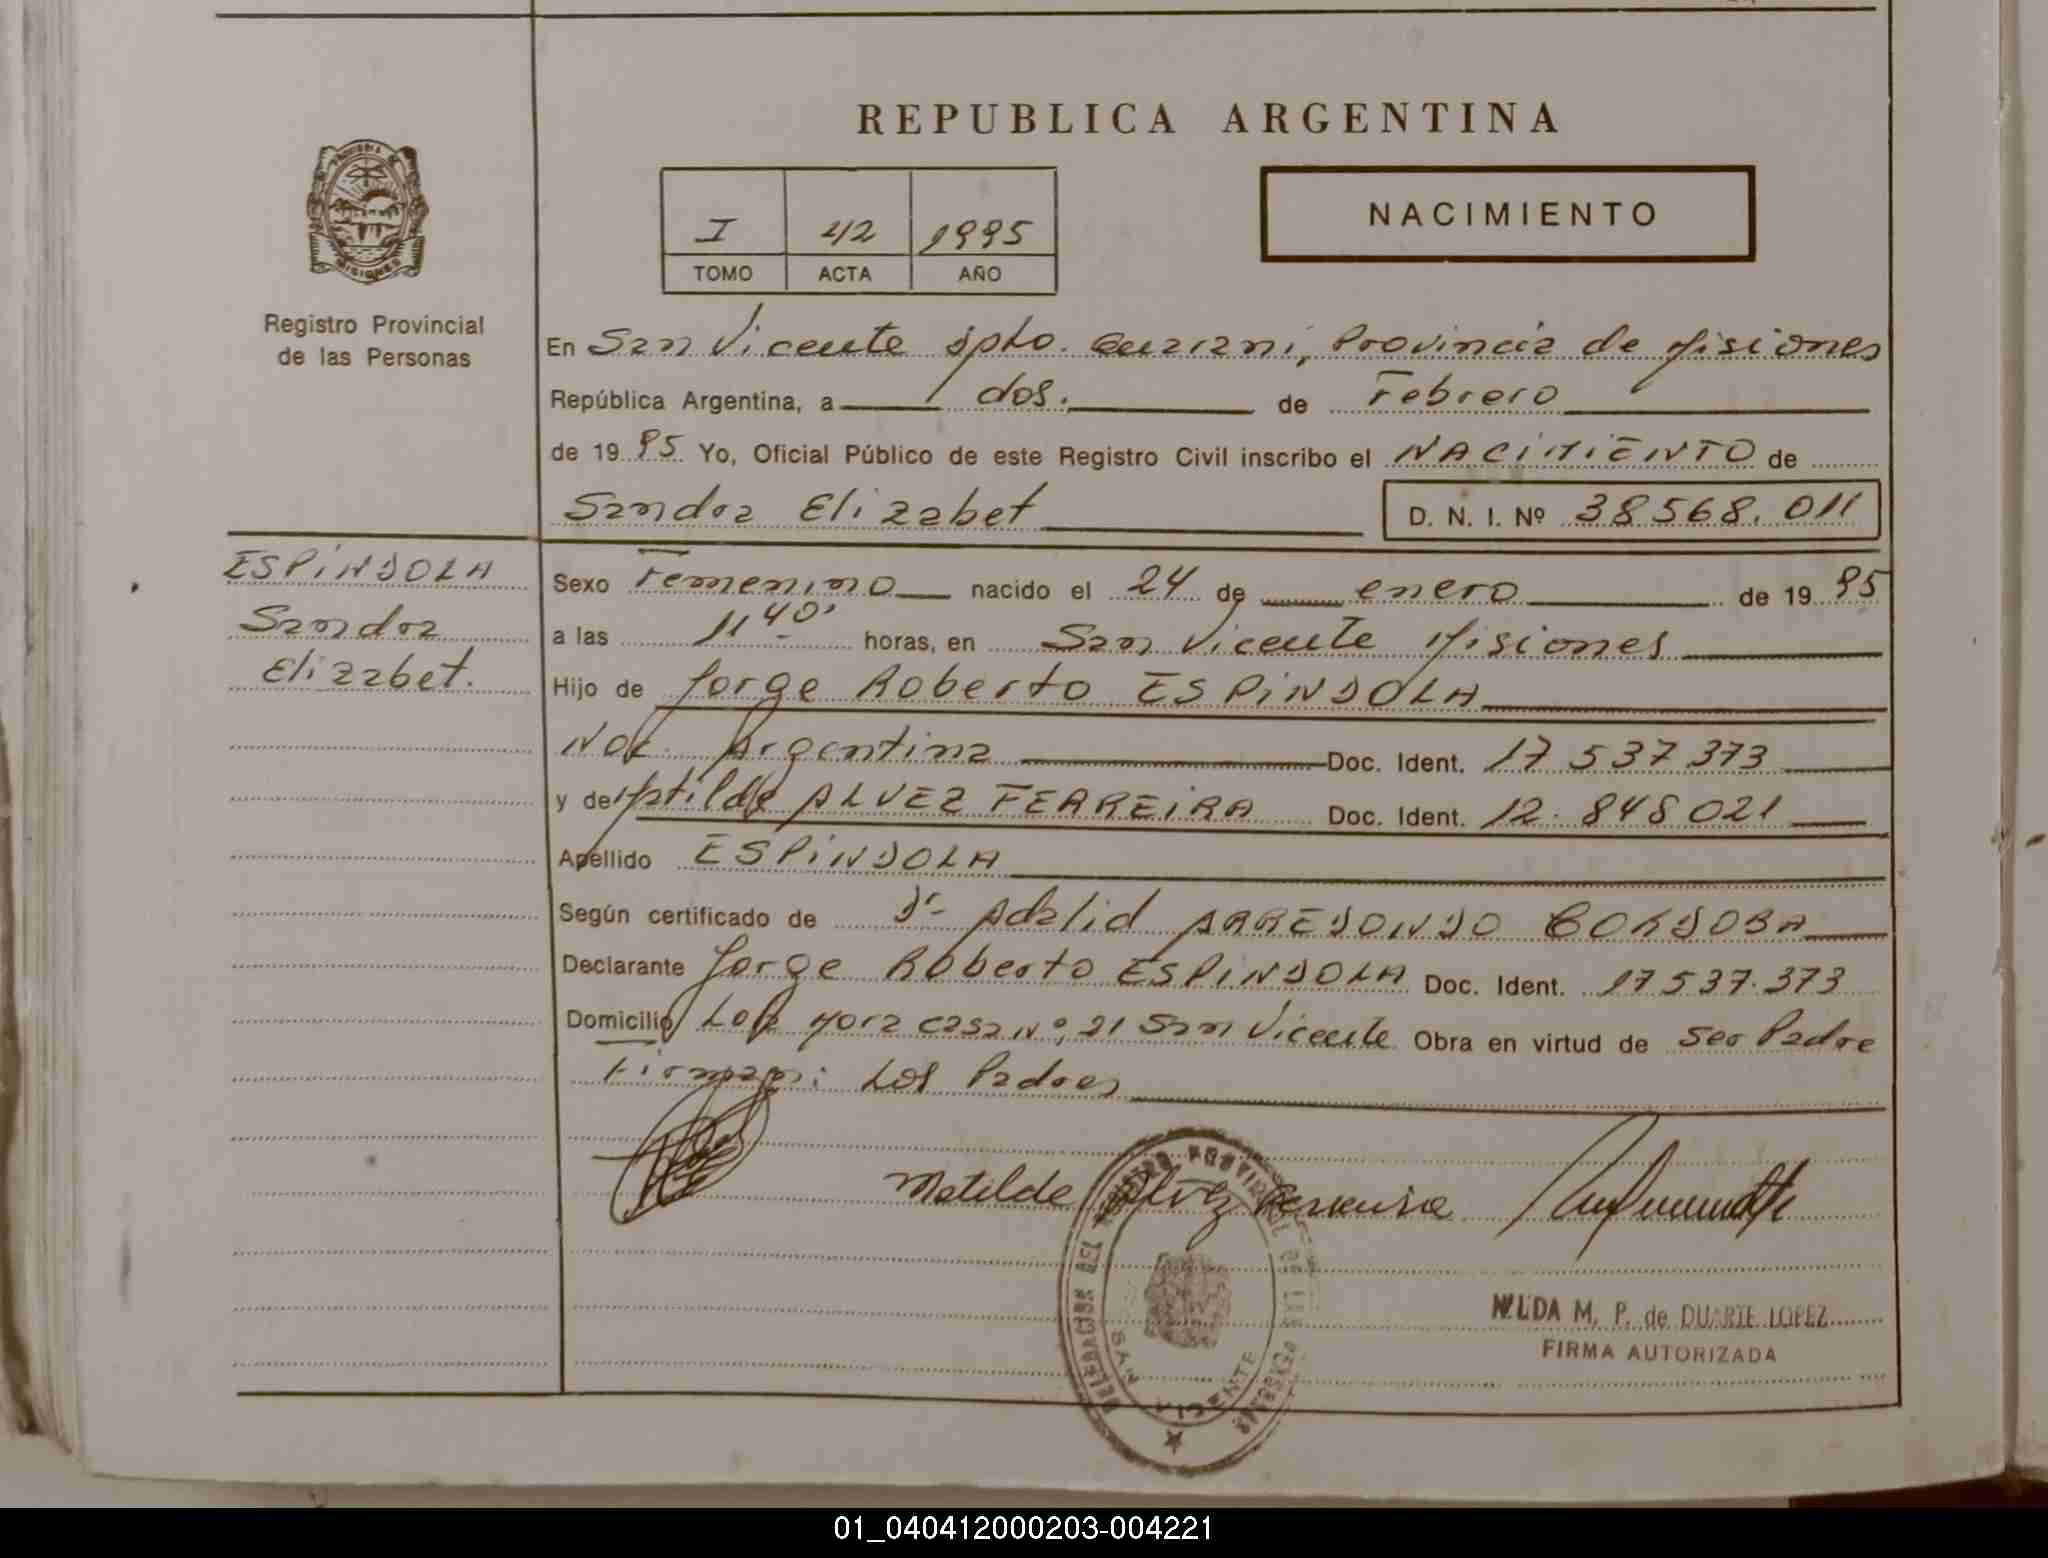 REPUBLICA ARGENTINA
PROVINCIA DE MISIONES
Registro Provincial
de las Personas
I 42 1995
TOMO ACTA AÑO
NACIMIENTO
En San Vicente Dpto. Guarani, Provincia de Misiones
República Argentina, a dos. de Febrero
de 1995 Yo, Oficial Público de este Registro Civil inscribo el NACIMIENTO de
Sandra Elizabet D. N. I. Nº 38568.011
ESPINDOLA
Sandra
Elizabet.
Sexo Femenino nacido el 24 de enero de 1995
a las 11 40' horas, en San Vicente Misiones
Hijo de Jorge Roberto ESPINDOLA
Nac. Argentina Doc. Ident. 17 537 373
y de Matilde ALVEZ FERREIRA Doc. Ident. 12.848021
Apellido ESPINDOLA
Según certificado de Dr- Adalid ARREDONDO CORDOBA
Declarante Jorge Roberto ESPINDOLA Doc. Ident. 17537.373
Domicilio casa Nº 21 San Vicente Obra en virtud de ser Padre
Firman: Los Padres
Matilde Alvez Ferreira
DELEGACION DEL REGISTRO PROVINCIAL DE LAS PERSONAS
SAN VICENTE
M. P. de DUARTE LOPEZ
FIRMA AUTORIZADA
01_040412000203-004221